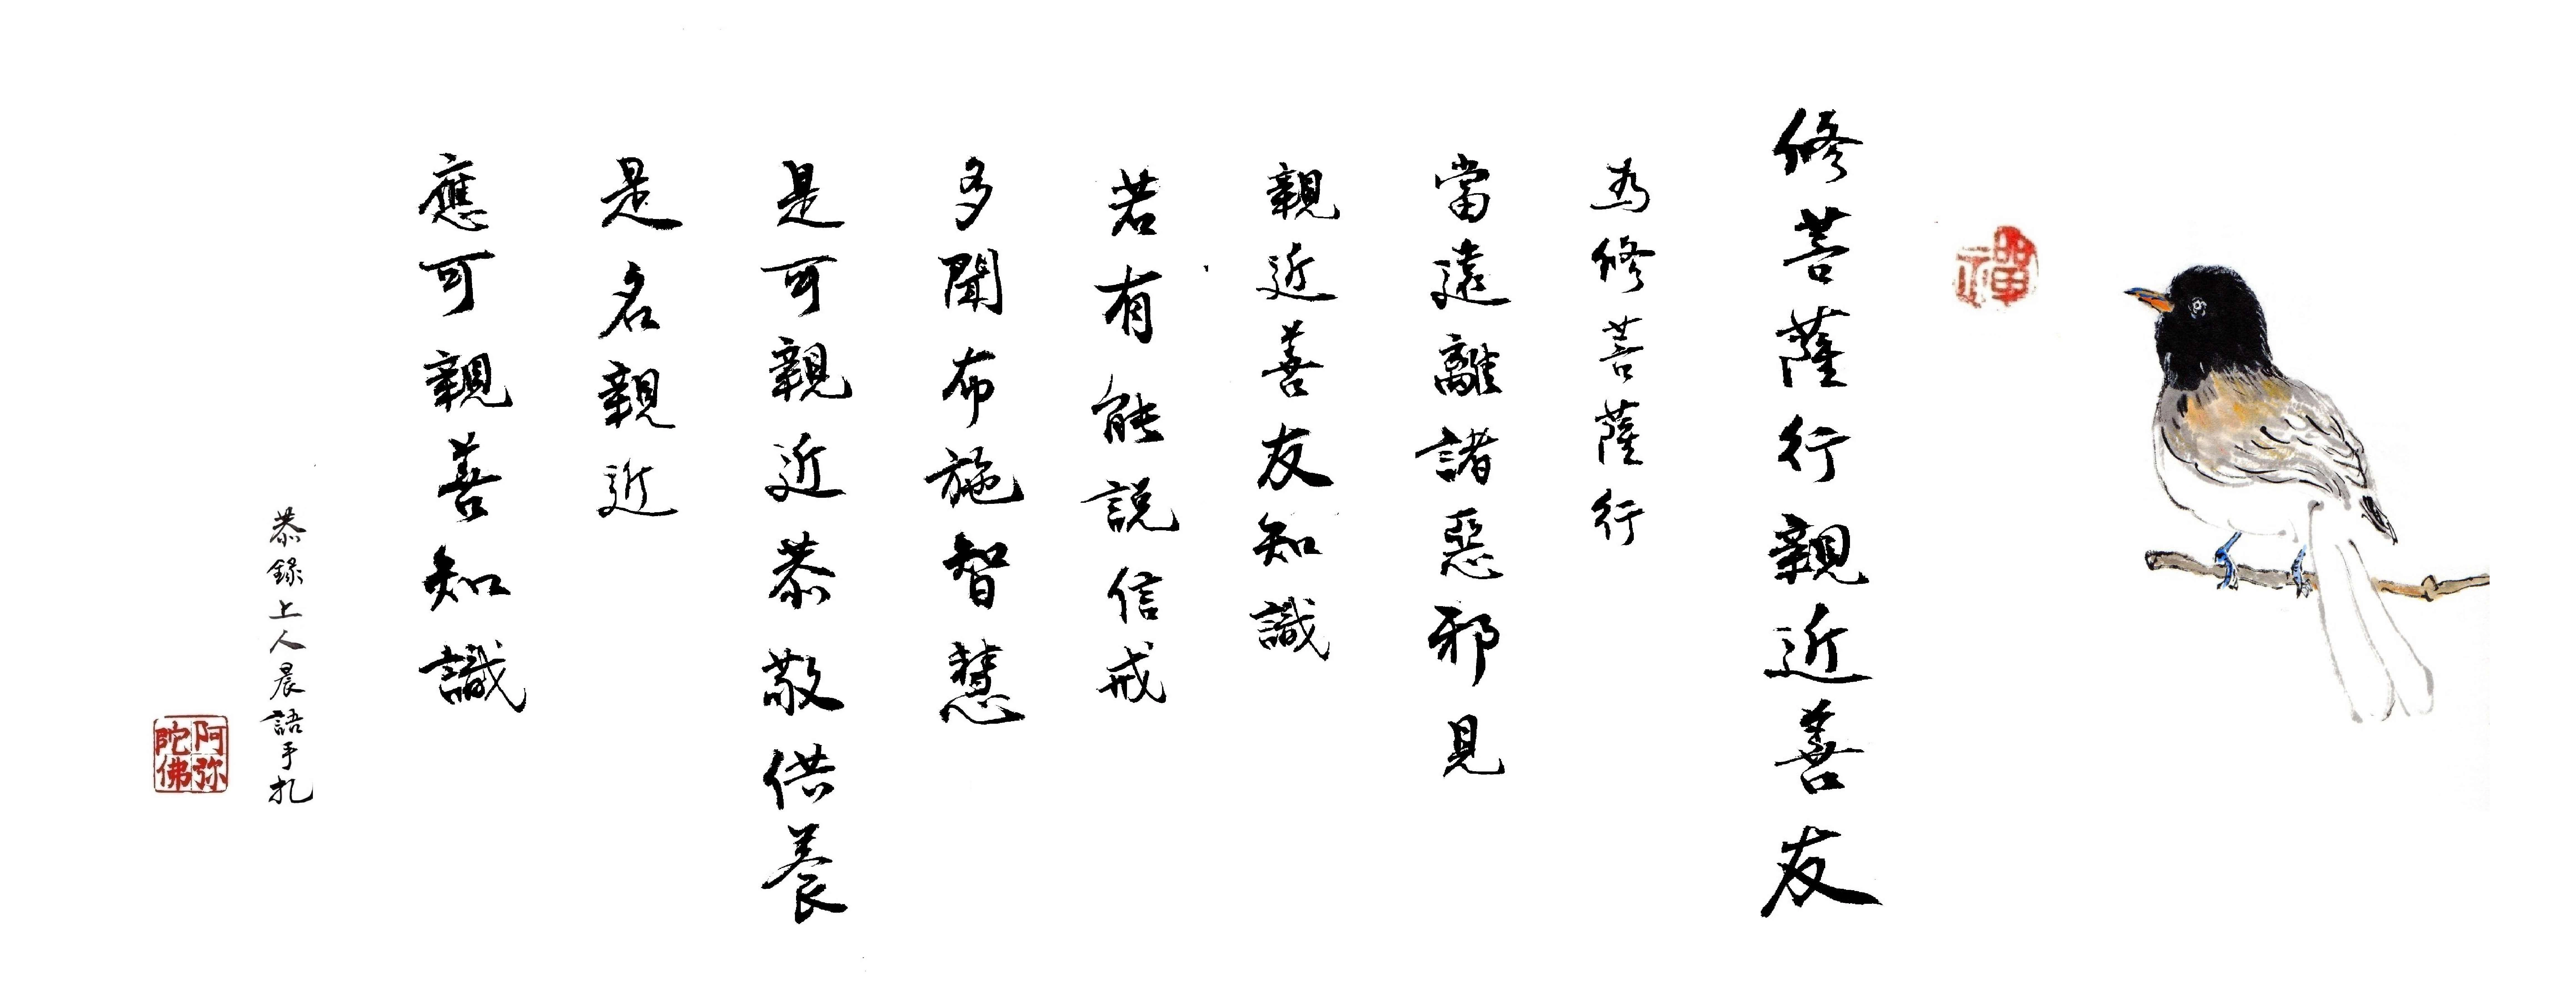 禪
修菩薩行親近善友
為修菩薩行
當遠離諸惡邪見
親近善友知識
若有能說信戒
多聞布施智慧
是可親近恭敬供養
是名親近
應可親善知識
恭錄上人晨語手札
阿弥
陀佛